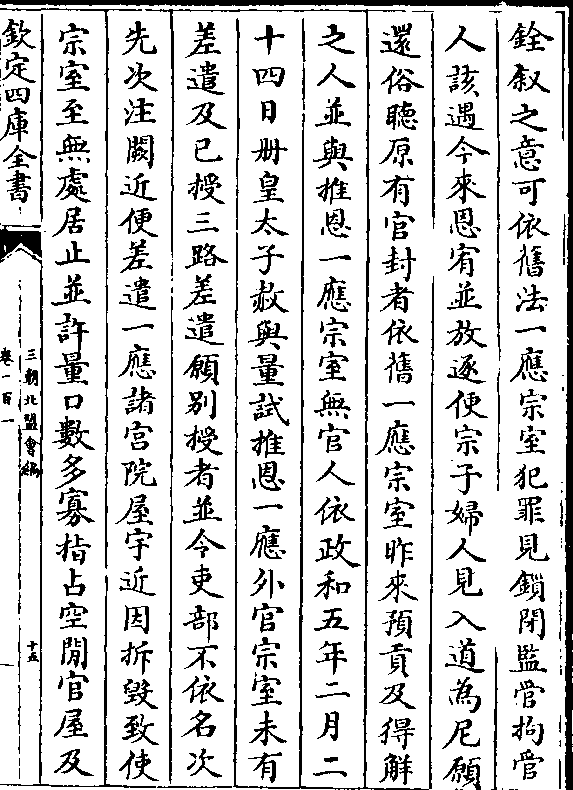 銓叙之意可依舊法一應宗室犯罪見鎖閉監管拘管
人該遇今來恩宥並放逐便宗子婦人見入道為尼願
還俗聽原有官封者依舊一應宗室昨來預貢及得解
之人並與推恩一應宗室無官人依政和五年二月二
十四日册皇太子赦與量試推恩一應外官宗室未有
差遣及已授三路差遣願别授者並令吏部不依名次
先次注闕近便差遣一應諸宮院屋宇近因拆毀致使
宗室至無處居止並許量口數多寡指占空閒官屋及
欽定四庫全書
三朝北盟會編
卷一百一
十五